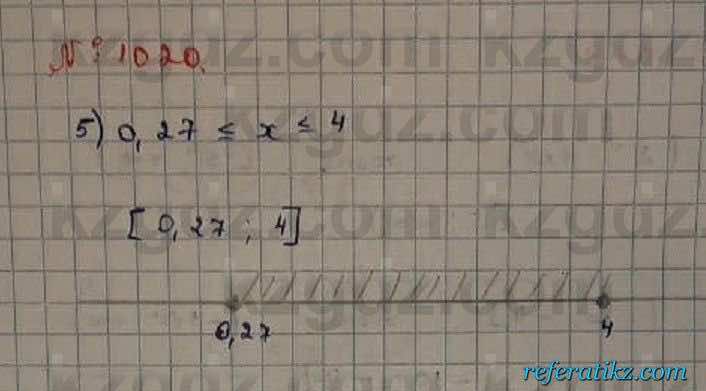 № 1020.
5) 0,27 ≤ x ≤ 4
[0,27 ; 4]
0,27 4
referatikz.com